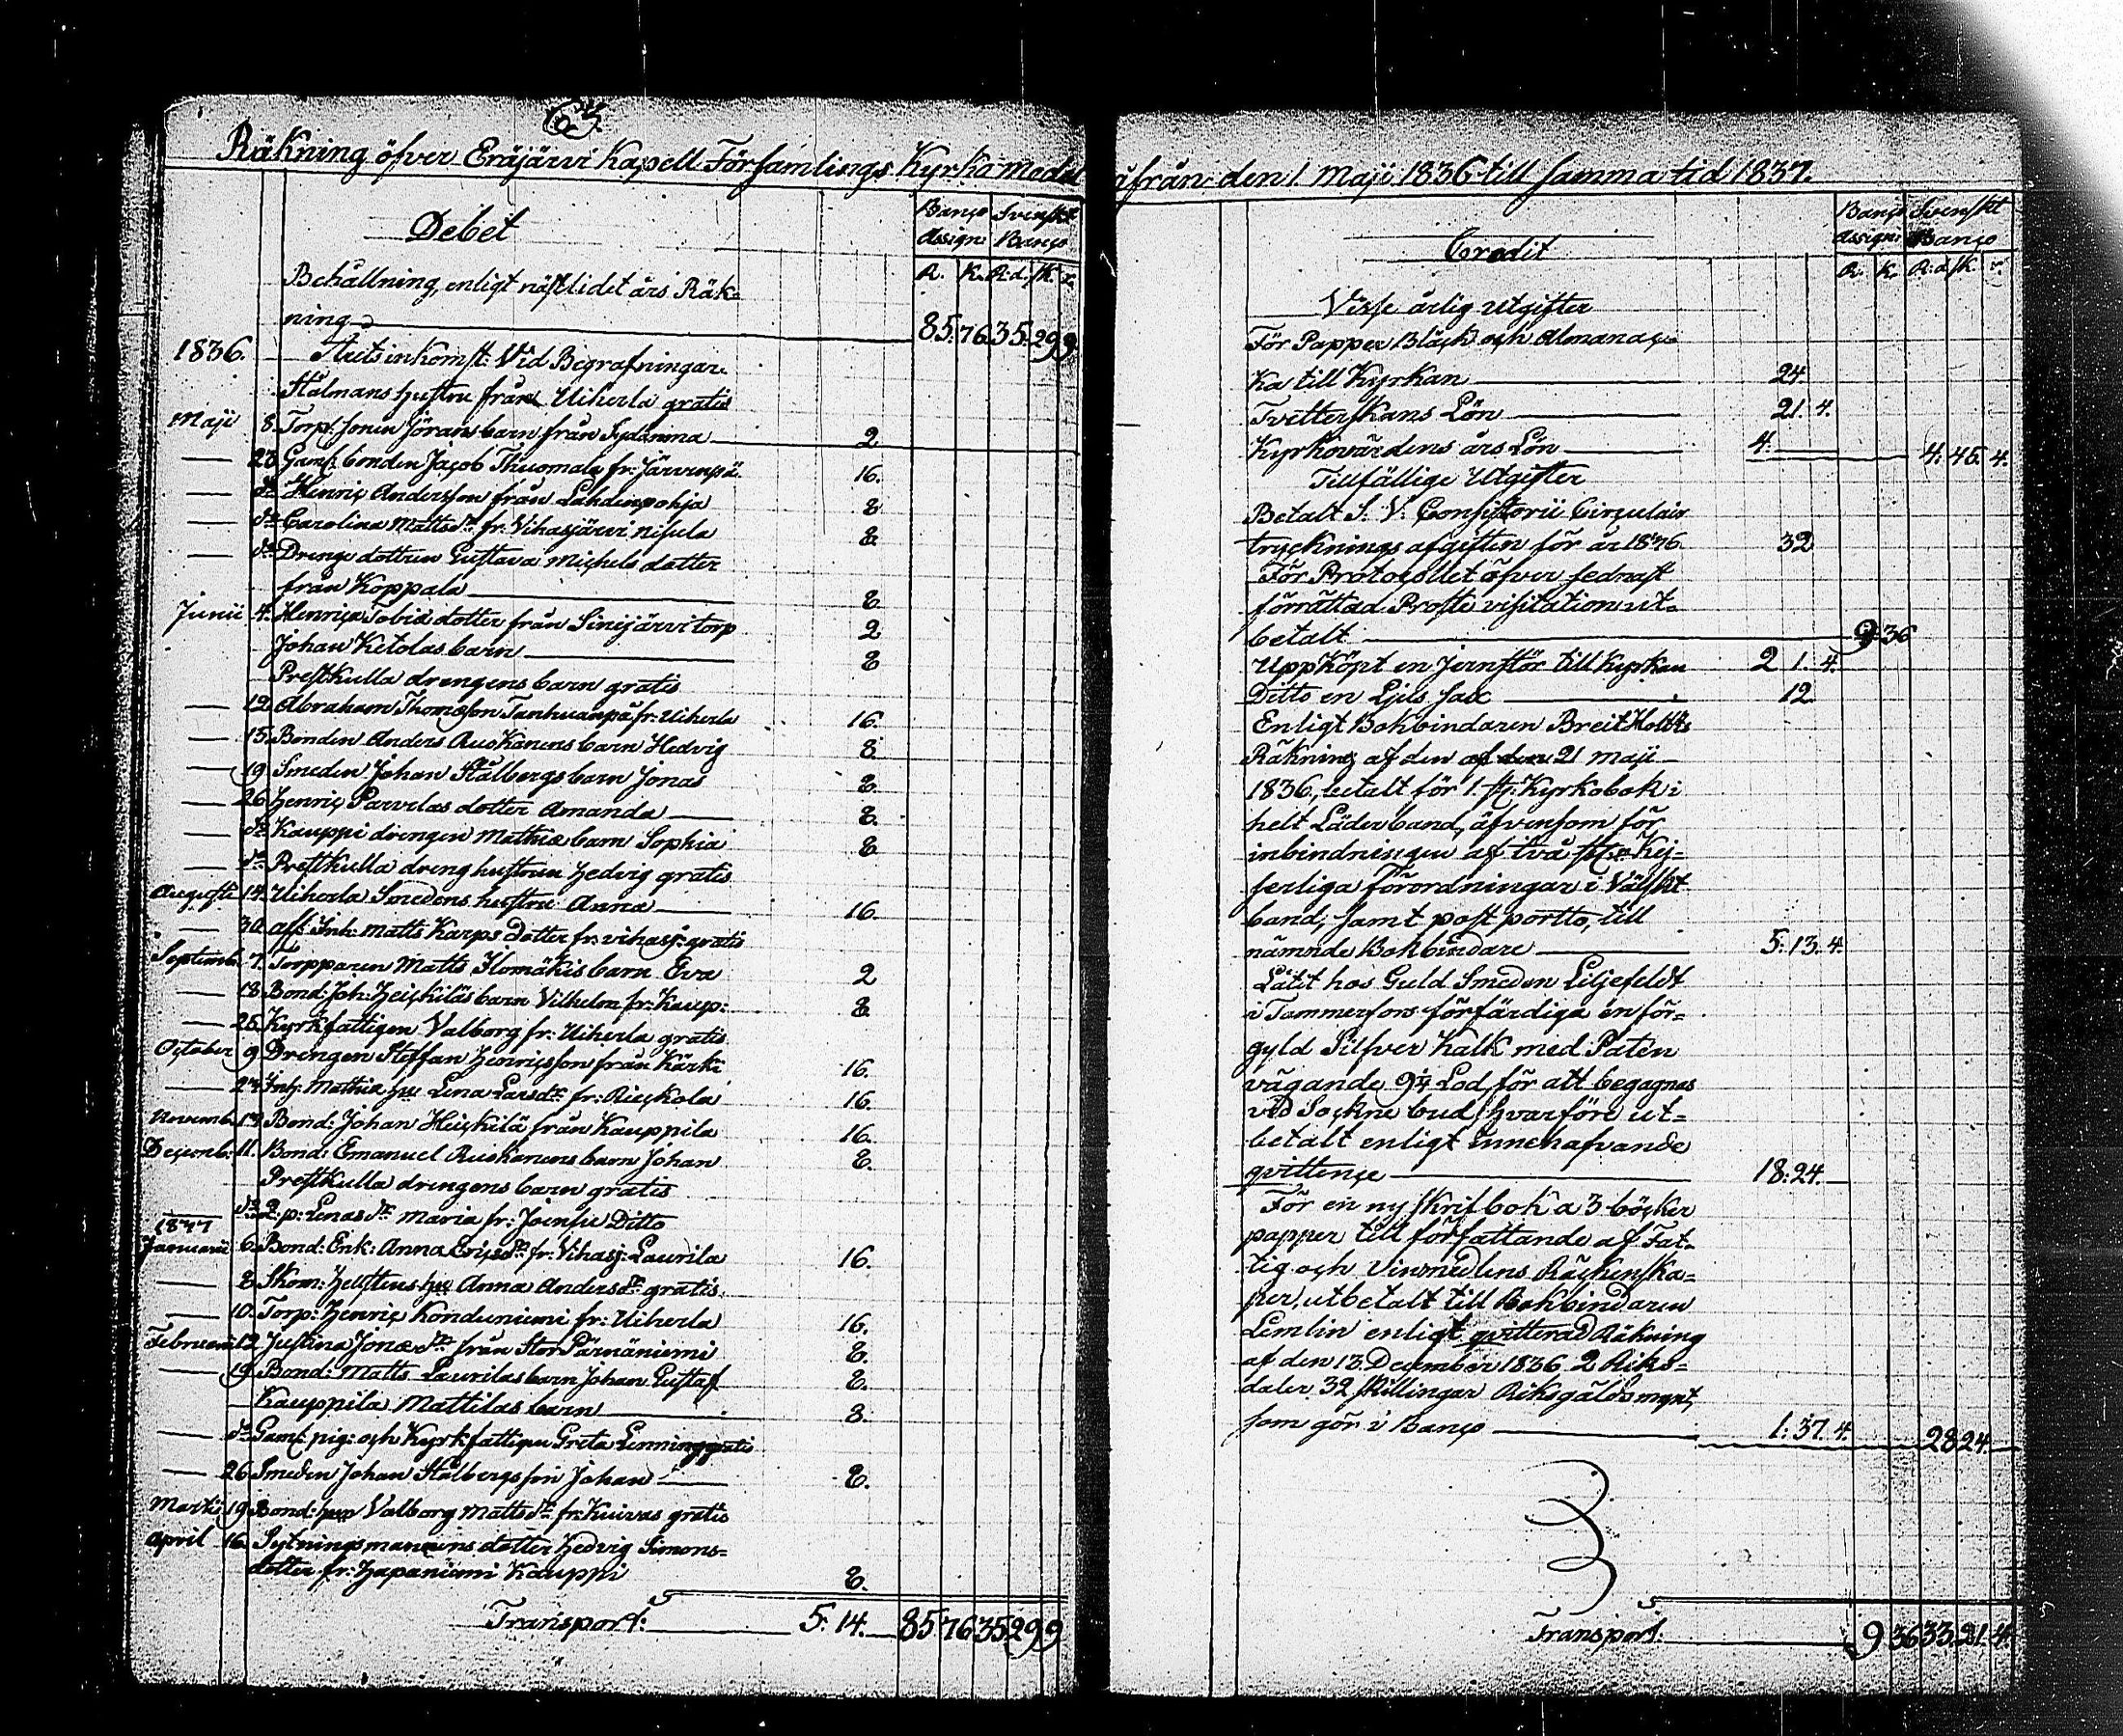 63.
Räkning öfver Eräjärvi Kapell Församlings Kyrko medel
Debet
Banco Svenskt
Assign: Banco
R. K. R:d. sk. r.
Behållning, enligt nästlidet års Räk-
ning 85. 76 35. 29 9
1836. Årets inkomst: Vid Begrafningar.
Stålmans hustru från Uiherla gratis
Maji 8. Torp: sonen Jörans barn från Sydänma 2
23 Gaml: bonden Jacob Thuomala fr: Järvenpä 16.
do Henric Andersson från Lahdenpohja 8
do Carolina Mattsdr fr: Vihasjärvi Nisula 8
do Drenge dottren Gustava Michels dotter
från Koppala 8
Junii 4. Henrica Tobiæ dotter från Sinijärvi torp 2
Johan Ketolas barn 8
Prestkulla drengens barn gratis
12. Abraham Thomæson Tanhuanpä fr: Uiherla 16.
15. Bonden Anders Ruskanens barn Hedvig 8.
19 Smeden Johan Stålbergs barn Jonas 8.
26 Henric Parvelas dotter Amanda 8.
do Kauppi drengen Mathiæ barn Sophia 8
do Prestkulla dreng hustrun Hedvig gratis
Augusti 14. Uiherla Smedens hustru Anna 16
30. aff: Inh: Matts Karps dotter fr: vihasj: gratis
Septemb. 7. Torpparen Matts Ilomäkis barn Eva 2
18 Bond: Joh: Heickiläs barn Vilhelm fr: Kaup: 8
25. Kyrkfattigen Valborg fr: Uiherla gratis
October 9 Drengen Steffan Henricsson från Kärki 16.
23. Inh: Mathiæ hu: Lena Larsdr fr: Rieckola 16.
Novemb. 13. Bond: Johan Heickilä från Kauppila 16.
Decemb. 11. Bond: Emanuel Ruskanens barn Johan 8.
Prestkulla drengens barn gratis
do Q: p: Lenas dr Maria fr: Joensu Ditto
1837
Januarii 6. Bond: Enk: Anna Ericsdr fr: Vihasj: Laurila 16.
8 Skom: Hellstens hu Anna Andersdr gratis.
10. Torp: Henric Konduniemi fr: Uiherla 16.
Februarii 12 Justina Jonædr från Stor Pärnäniemi 8.
19. Bond: Matts Laurilas barn Johan Gustaf 8.
Kauppila Mattilas barn 8.
do Gaml: pig: och Kyrkfattigen Greta Lenning gratis
26 Smeden Johan Stålbergs son Johan 8.
Martii 19 Bond: hu Valborg Mattsdr fr: Kuivas gratis
April 16. Sytningsmannens dotter Hedvig Simons-
dotter fr: Hapaniemi Kauppi 8.
Transport: 5. 14. 85 76 35 29 9
ifrån den 1. Maji 1836 till samma tid 1837.
Credit
Banco Svenskt
Assign: Banco
R. K. R:d. sk. r.
Visse årlig Utgifter
För Papper Bläck och Almanac-
ka till Kyrkan 24.
Tvetterskans Lön 21. 4.
Kyrkovärdens års Lön 4. 4. 45. 4.
Tillfällige Utgifter
Betalt S. V. Consistorii Circulair
trycknings afgiften för år 1836 32
För Protocollet öfver sednast
förrättad Proste visitation ut-
betalt 9 36
Uppköpt en Jernstör till Kyrkan 2 1. 4.
Ditto en Ljus sax 12
Enligt Bokbindaren BreitHolts
Räkning af den af den 21 Maji
1836, betalt för 1. st. Kyrkobok i
helt Läder band, äfvensom för
inbindningen af två st: Kej-
serliga Förordningar i Välskt
band, samt post portto, till
nämnde Bokbindare 5. 13. 4.
Låtit hos Guld Smeden Liljefeldt
i Tammerfors förfärdiga en för-
gyld Silfver Kalk med Patén
vägande 9¼ Lod, för att begagnas
vid Sockne bud, hvarföre ut-
betalt enligt innehafvande
qvittence 18. 24.
För en ny skrifbok a 3 böcker
papper till författande af Fat-
tig och Vinmedlens Räckenska-
per, utbetalt till Bokbindaren
Lemlin enligt qvitterad Räkning
af den 13 December 1836 2 Riks-
daler 32 skillingar Riksgälds mynt,
som gör i Banco 1. 37. 4. 28 24.
Transport: 9 36 33. 21. 4.